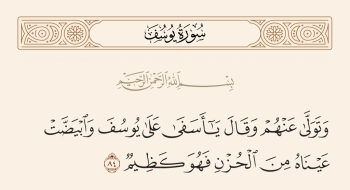 سُورَةُ يُوسُفَ
بِسْمِ اللَّهِ الرَّحْمَٰنِ الرَّحِيمِ
وَتَوَلَّىٰ عَنْهُمْ وَقَالَ يَا أَسَفَىٰ عَلَىٰ يُوسُفَ وَابْيَضَّتْ
عَيْنَاهُ مِنَ الْحُزْنِ فَهُوَ كَظِيمٌ ٨٤